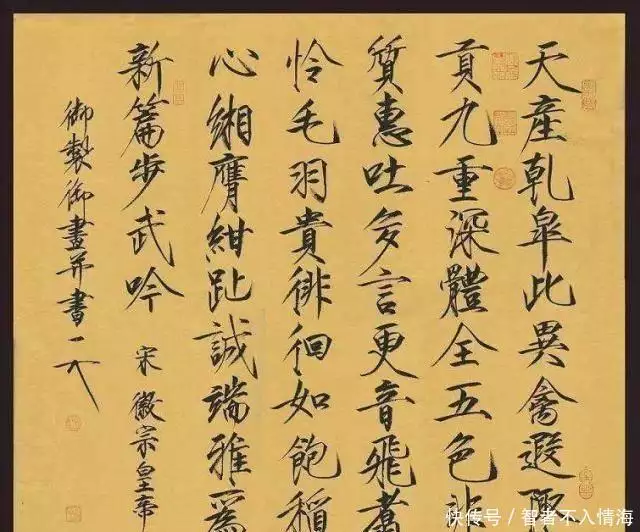 天產乹皐此異禽遐陬
貢九重深體全五色非
質惠吐多言更音飛翥
怜毛羽貴徘徊如飽稻
心緗膺紺趾誠端雅爲
新篇步武吟
宋徽宗皇帝
御製御畫并書
快传号／智者不入情海